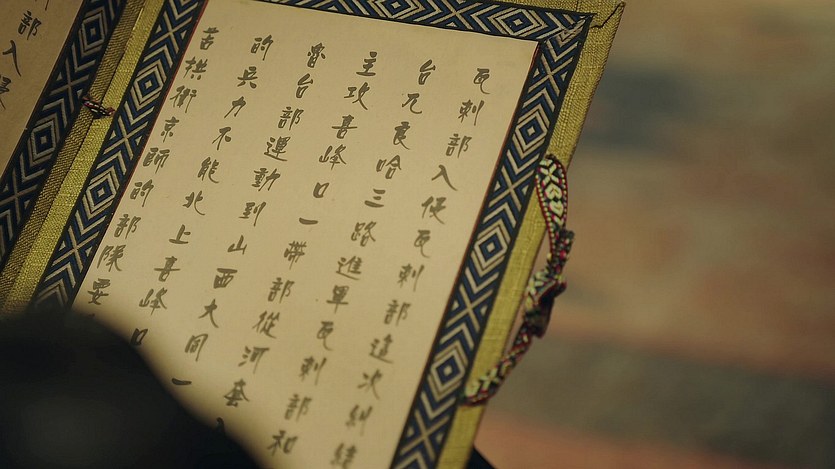 瓦剌部入侵瓦剌部這次糾結
台兀良哈三路進軍瓦剌部和
主攻喜峰口一帶部從河套入
魯台部運動到山西大同一
的兵力不能北上喜峰口
苦拱衛京師的部隊要
部入侵